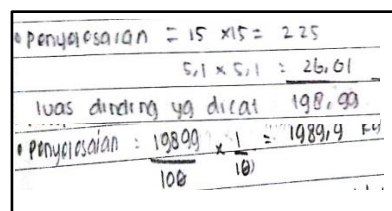 • penyelesaian = 15 x 15 = 225
5,1 x 5,1 = 26,01
luas dinding yg dicat 198,99
• penyelesaian : 19899/100 x 1/10 = 1989,9